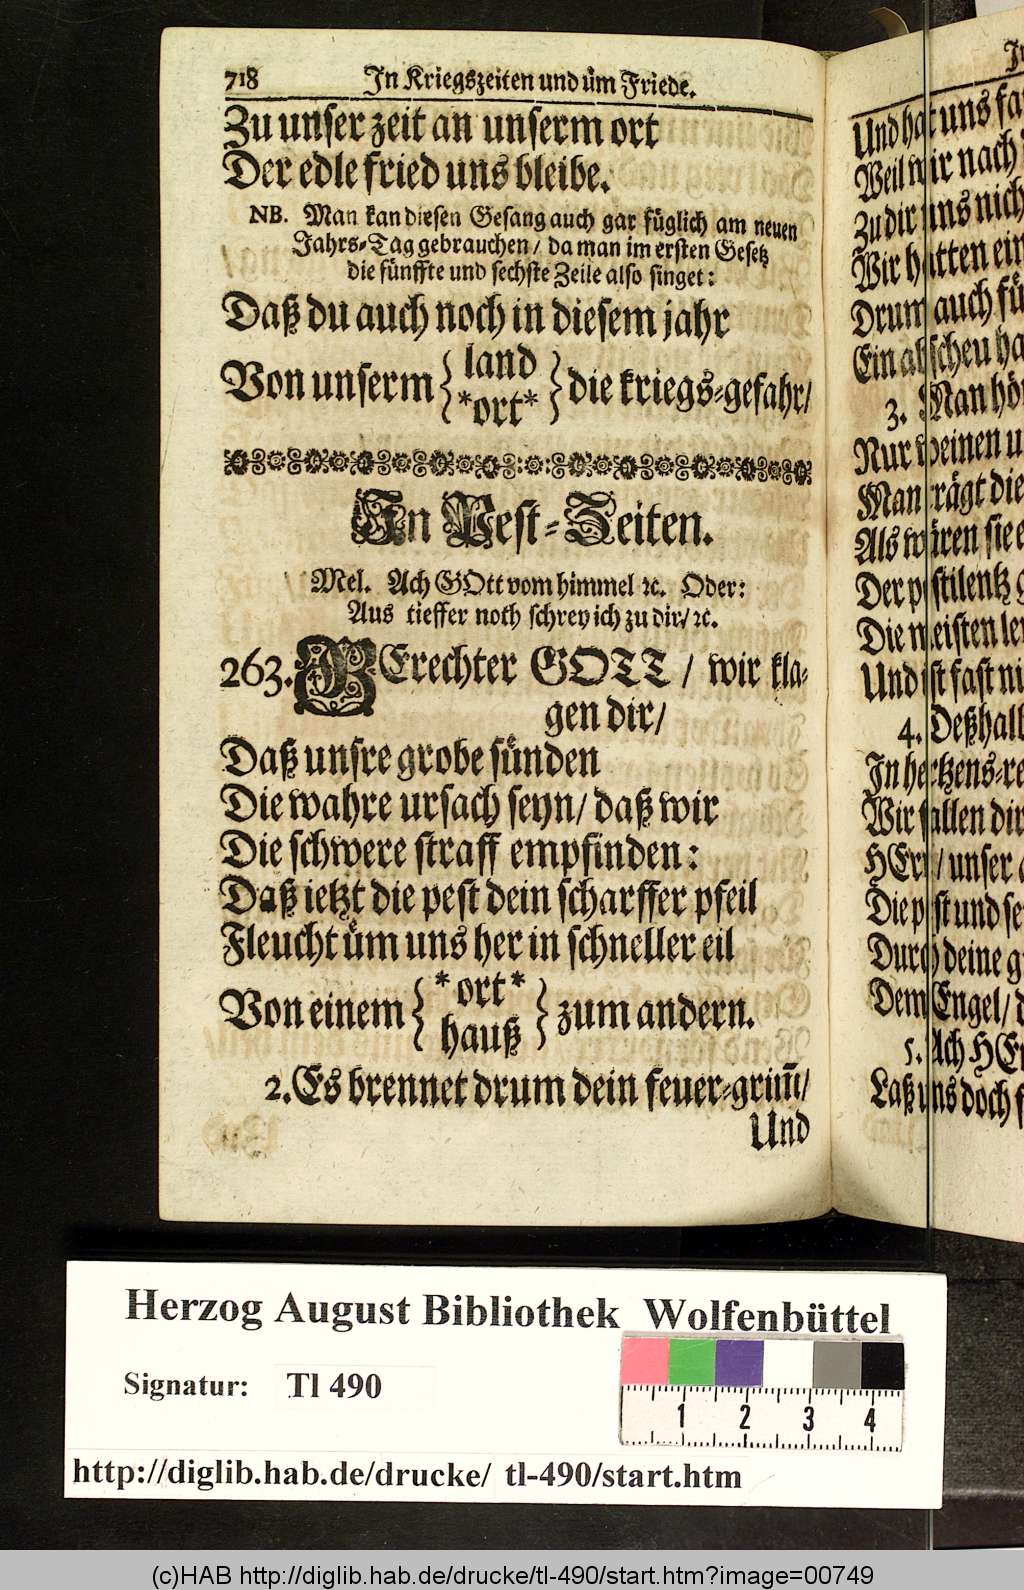 718 In Kriegszeiten und üm Friede.
Zu unser zeit an unserm ort
Der edle fried uns bleibe.
NB. Man kan diesen Gesang auch gar füglich am neuen
Jahrs-Tag gebrauchen / da man im ersten Gesetz
die fünffte und sechste Zeile also singet:
Daß du auch noch in diesem jahr
Von unserm { land *ort* } die kriegs-gefahr/
In Pest-Zeiten.
Mel. Ach GOtt vom himmel ꝛc. Oder:
Aus tieffer noth schrey ich zu dir/ ꝛc.
263. GErechter GOTT / wir kla-
gen dir/
Daß unsre grobe sünden
Die wahre ursach seyn/ daß wir
Die schwere straff empfinden:
Daß ietzt die pest dein scharffer pfeil
Fleucht üm uns her in schneller eil
Von einem { *ort* hauß } zum andern.
2. Es brennet drum dein feuer-grim̅/
Und
Und hat uns
Weil wir nach
Zu dir uns
Wir hatten
Drum auch
Ein abscheu
3. Man
Nur weinen
Man trägt die
Als wären sie
Der pestilentz
Die meisten
Und ist fast
4. Deßhalb
In hertzens-
Wir fallen dir
HErr/ unser
Die pest und
Durch deine
Dem Engel/
5. Ach
Laß uns doch
Herzog August Bibliothek Wolfenbüttel
Signatur: Tl 490
1 2 3 4
http://diglib.hab.de/drucke/ tl-490/start.htm
(c)HAB http://diglib.hab.de/drucke/tl-490/start.htm?image=00749